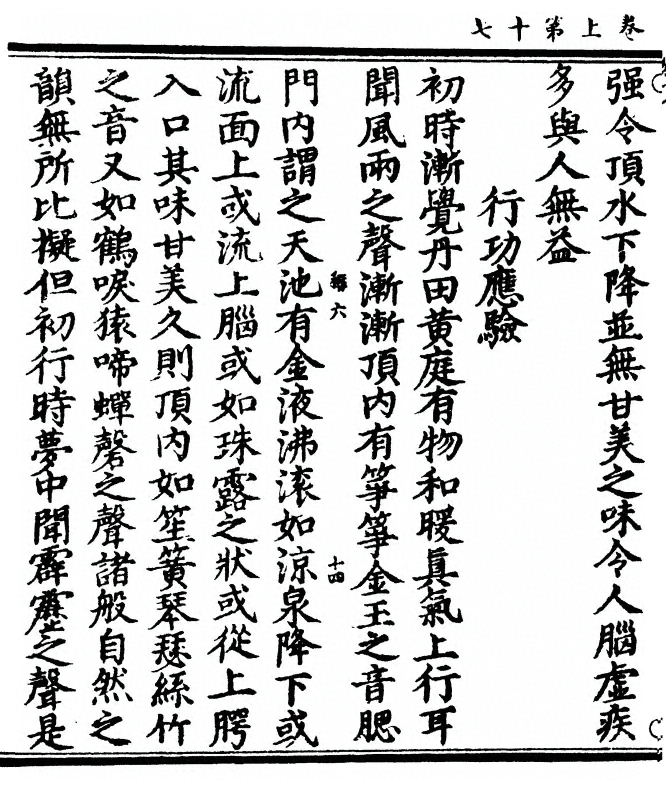 卷上第十七
强令頂水下降並無甘美之味令人腦虛疾
多與人無益
行功應驗
初時漸覺丹田黄庭有物和暖眞氣上行耳
聞風雨之聲漸漸頂内有箏篁金玉之音腮
門内謂之天池有金液沸滚如涼泉降下或
流面上或流上腦或如珠露之狀或從上腭
入口其味甘美久則頂内如笙簧琴瑟絲竹
之音又如鶴唳猿啼蟬磬之聲諸般自然之
韻無所比擬但初行時夢中聞霹靂之聲是
六
十四